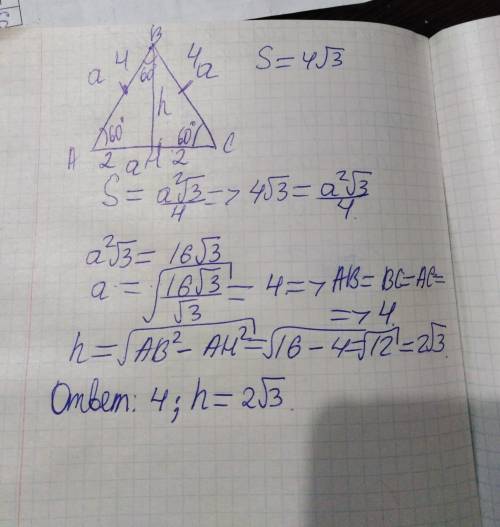 B
4 4
a a
60°
h
S = 4√3
60° 60°
A 2 H 2 C
a
S = a²√3/4 => 4√3 = a²√3/4
a²√3 = 16√3
a = √(16√3/√3) = 4 => AB = BC = AC =
=> 4
h = √(AB² - AH²) = √(16 - 4) = √12 = 2√3.
Ответ: 4; h = 2√3.